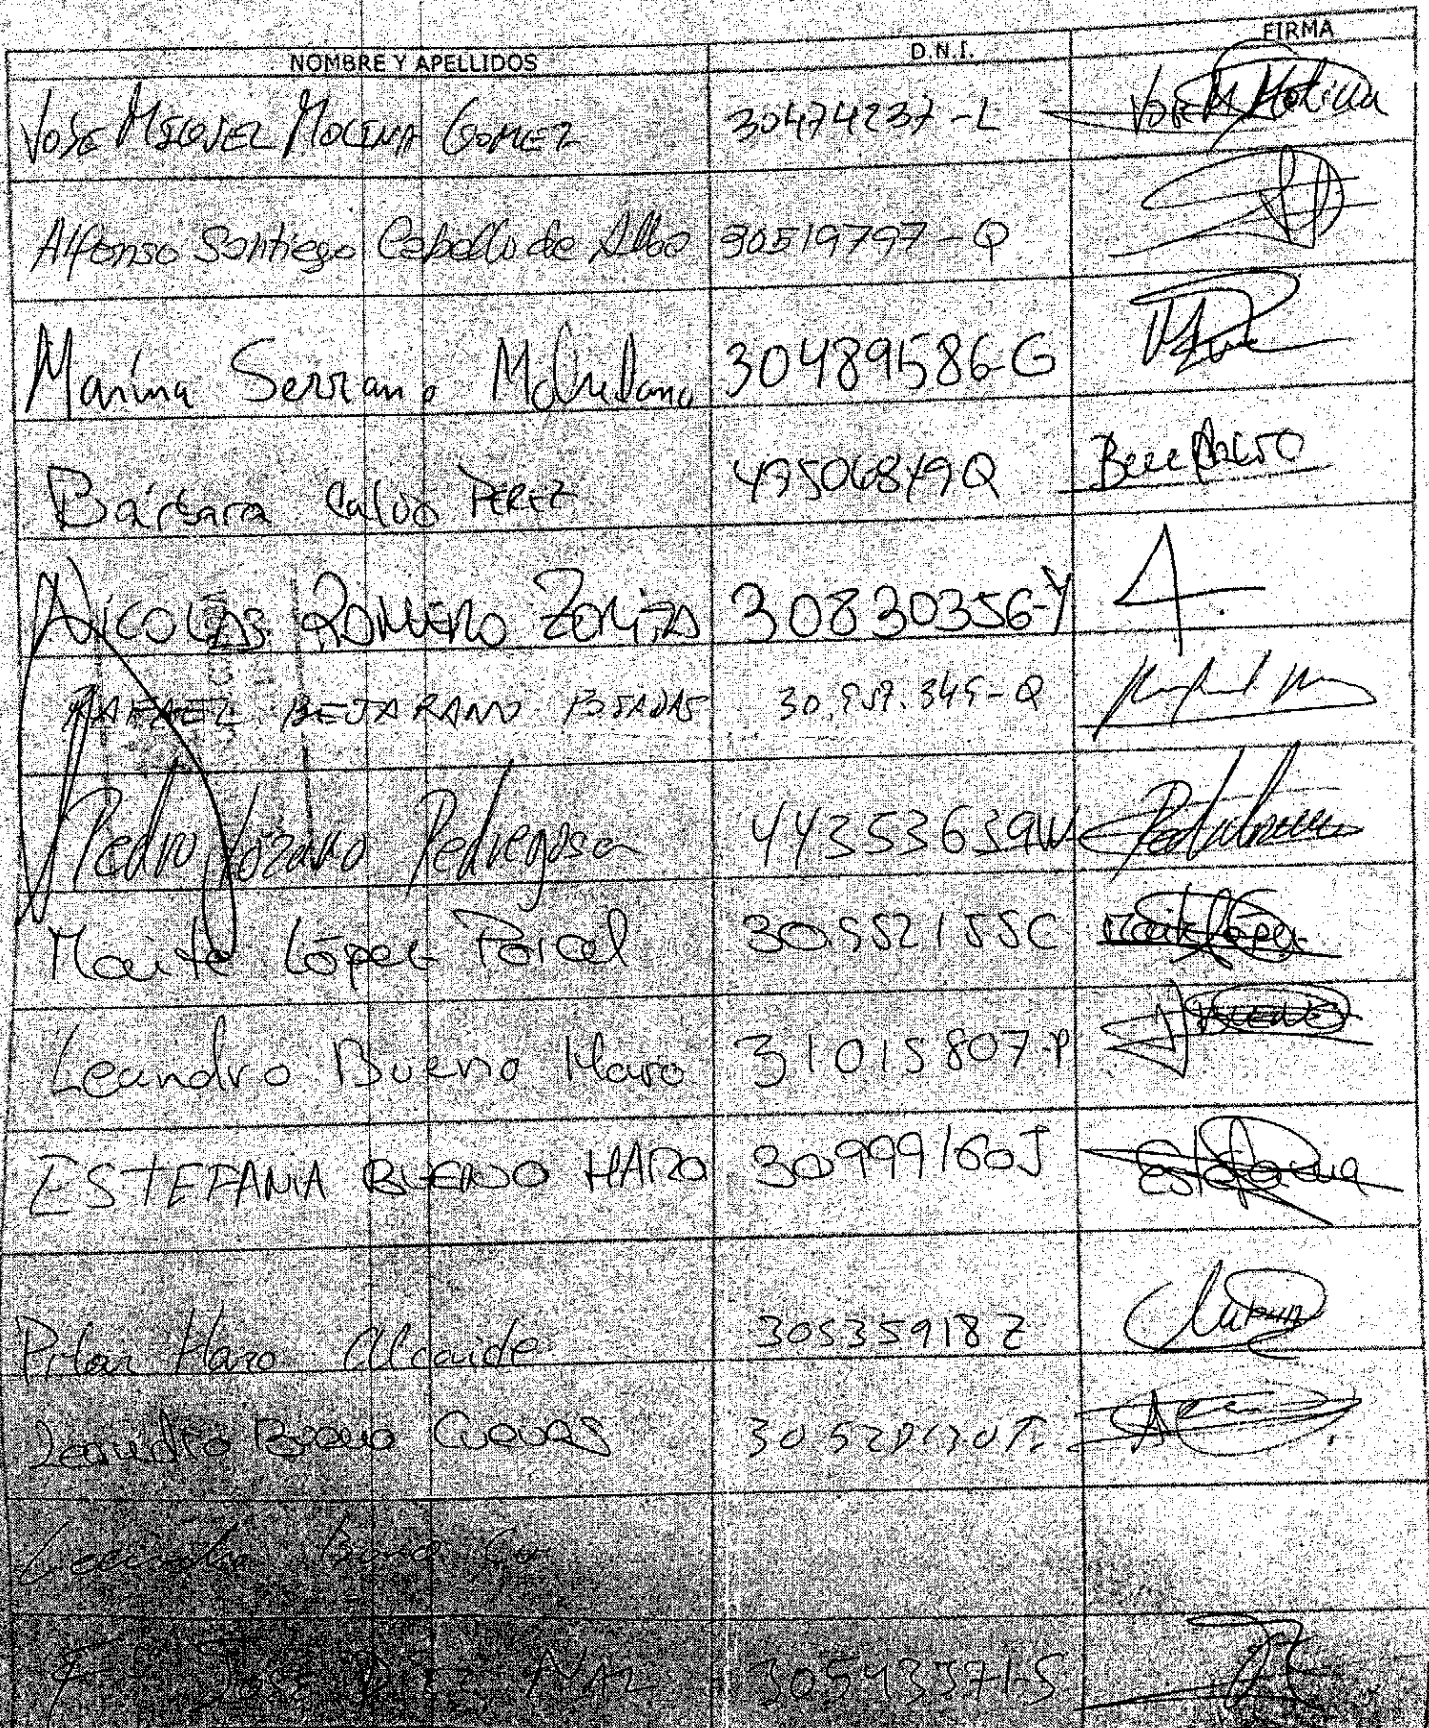 NOMBRE Y APELLIDOS D.N.I. FIRMA
JOSE MIGUEL MOLINA GOMEZ 30474237-L Jose M Molina
Alfonso Santiago Caballo de Alba 30519797-Q
Marina Serrano 30489586-G
Bárbara Calvo PEREZ Calvo
NICOLAS ROMERO ZORIZA 30830356-Y
RAFAEL BEJARANO
Pedro Lozano Pedregosa 44353639W
Maite López Porcel 30.552155C Maite López
Leandro Bueno Haro 31015807-P BUENO
ESTEFANIA BUENO HARO 30999160J Estefania
Pilar Haro Alcaide 30535918Z
Leandro Bueno Cuevas
Leandro Bueno Cu
JOSE 30543571-S